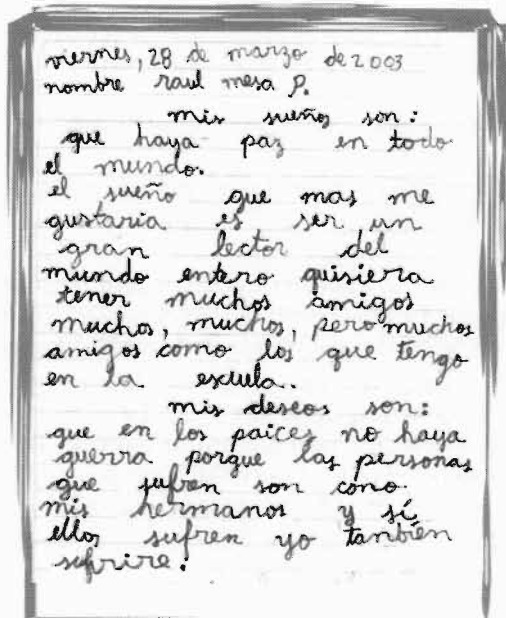 viernes, 28 de marzo de 2003
nombre raul mesa P.
mis sueños son:
que haya paz en todo
el mundo.
el sueño que mas me
gustaria es ser un
gran lector del
mundo entero quisiera
tener muchos amigos
muchos, muchos, pero muchos
amigos como los que tengo
en la escuela.
mis deseos son:
que en los paices no haya
guerra porque las personas
que sufren son como
mis hermanos y sí
ellos sufren yo también
sufrire.